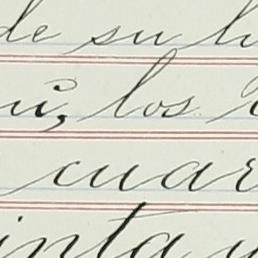 de su
los
cuar
inta y